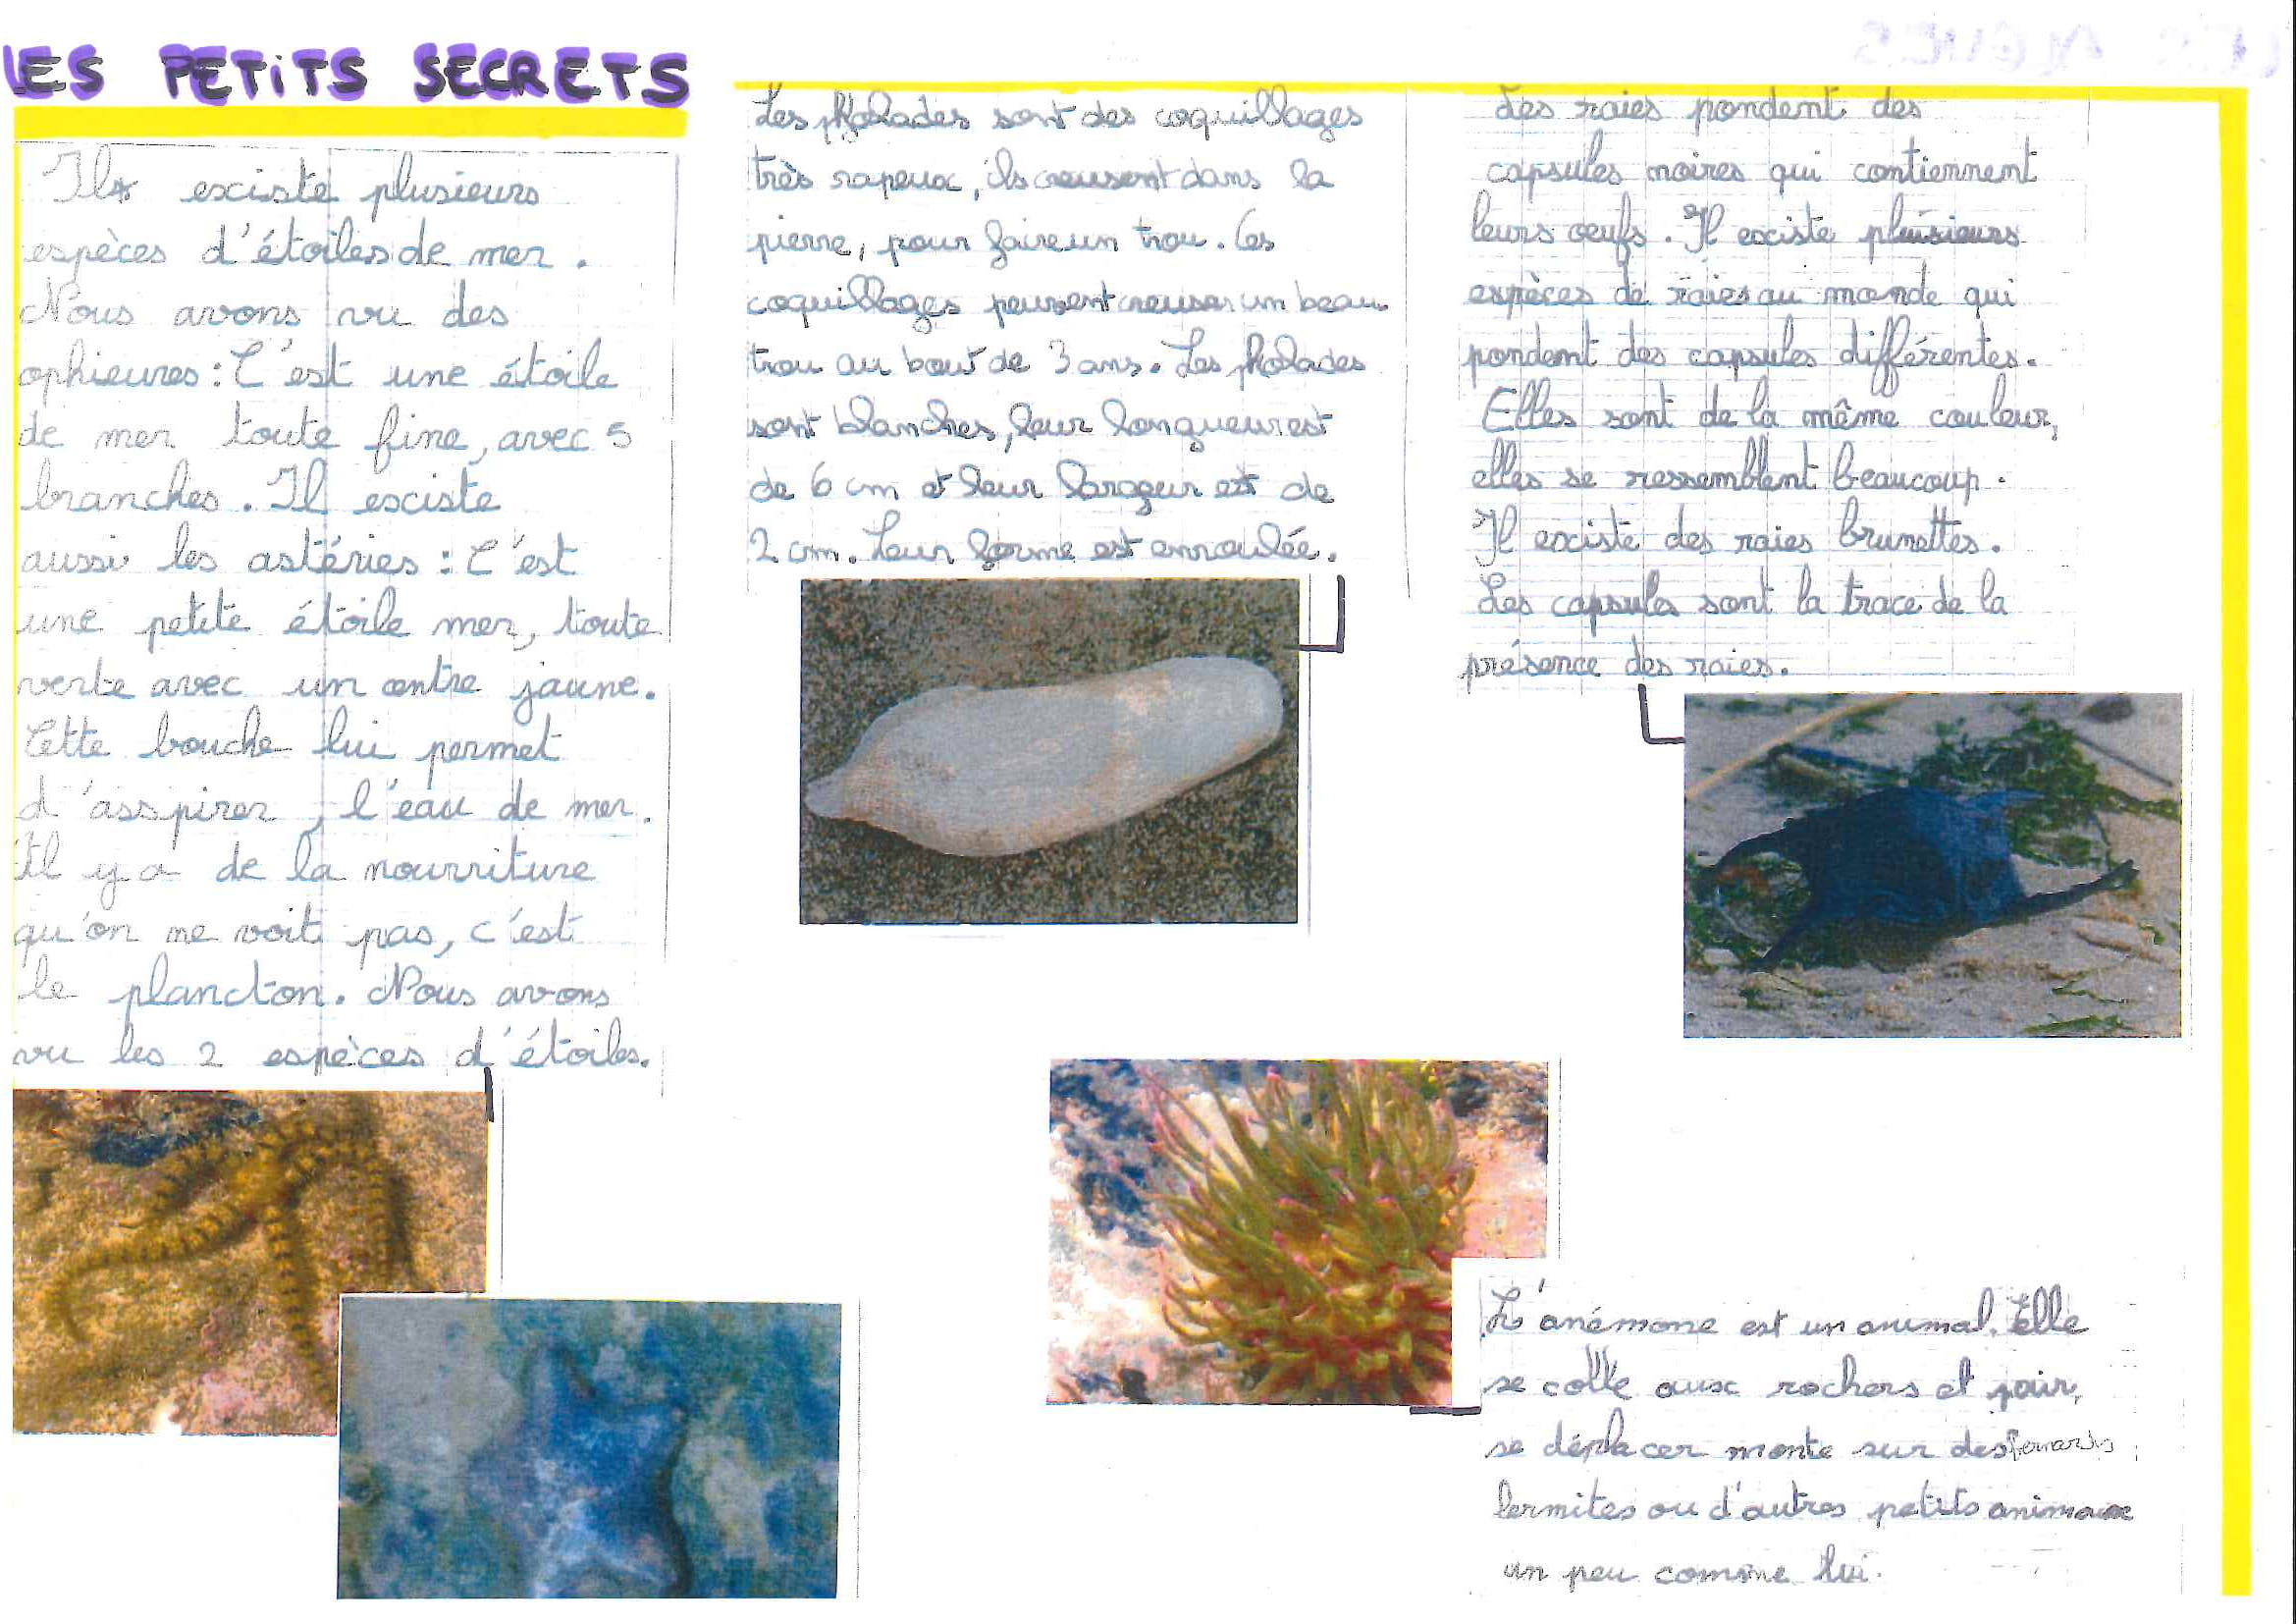 LES PETITS SECRETS
Il existe plusieurs
espèces d'étoiles de mer.
Nous avons vu des
ophieures : C'est une étoile
de mer toute fine, avec 5
branches. Il existe
aussi les astéries : C'est
une petite étoile mer, toute
verte avec un centre jaune.
Cette bouche lui permet
d'asspirer, l'eau de mer.
Il y a de la nourriture
qu'on ne voit pas, c'est
le plancton. Nous avons
vu les 2 espèces d'étoiles.
Les pholades sont des coquillages
très rapeux, ils creusent dans la
pierre, pour faire un trou. Ces
coquillages peuvent creuser un beau
trou au bout de 3 ans. Les pholades
sont blanches, leur longueur est
de 6 cm et leur largeur est de
2 cm. Leur forme est enroulée.
Les raies pondent des
capsules noires qui contiennent
leurs oeufs. Il existe plusieurs
espèces de raies au monde qui
pondent des capsules différentes.
Elles sont de la même couleur,
elles se ressemblent beaucoup.
Il existe des raies brunettes.
Les capsules sont la trace de la
présence des raies.
L'anémone est un animal. Elle
se colle aux rochers et pour,
se déplacer monte sur des
lermites ou d'autres petits animaux
un peu comme lui.